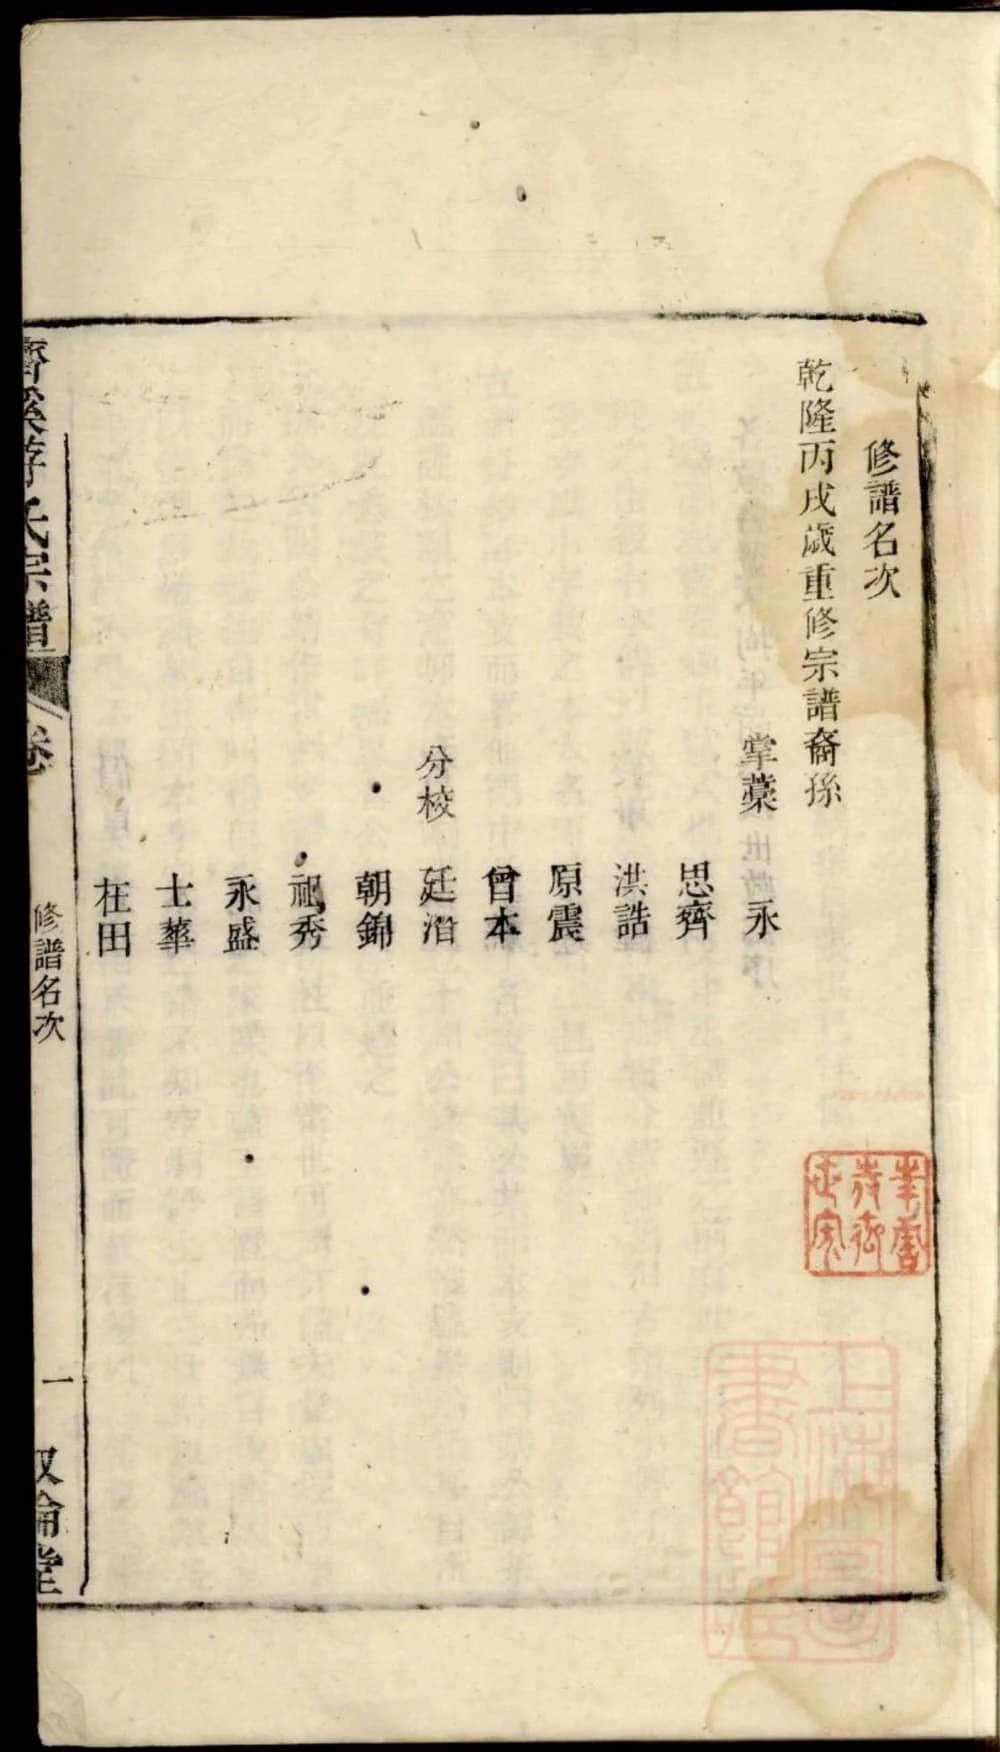 修譜名次
乾隆丙戌歲重修宗譜裔孫
掌藁 永
思齊
洪誥
原震
曾本
分校 廷滔
朝錦
祖秀
永盛
士華
在田
濟溪游氏宗譜 卷 修譜名次 一 叙倫堂
上海圖書館藏